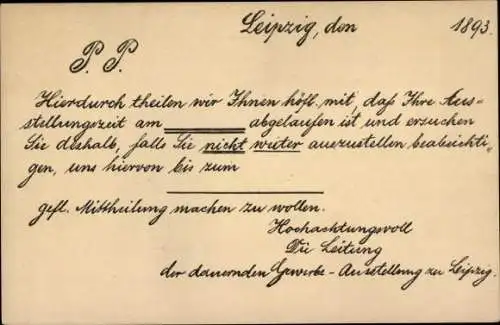 Leipzig, den 1893.
P. P.
Hierdurch theilen wir Ihnen höfl. mit, daß Ihre Aus-
stellungszeit am abgelaufen ist und ersuchen
Sie deshalb, falls Sie nicht weiter auszustellen beabsichti-
gen, uns hiervon bis zum
gefl. Mittheilung machen zu wollen.
Hochachtungsvoll
Die Leitung
der dauernden Gewerbe-Ausstellung zu Leipzig.